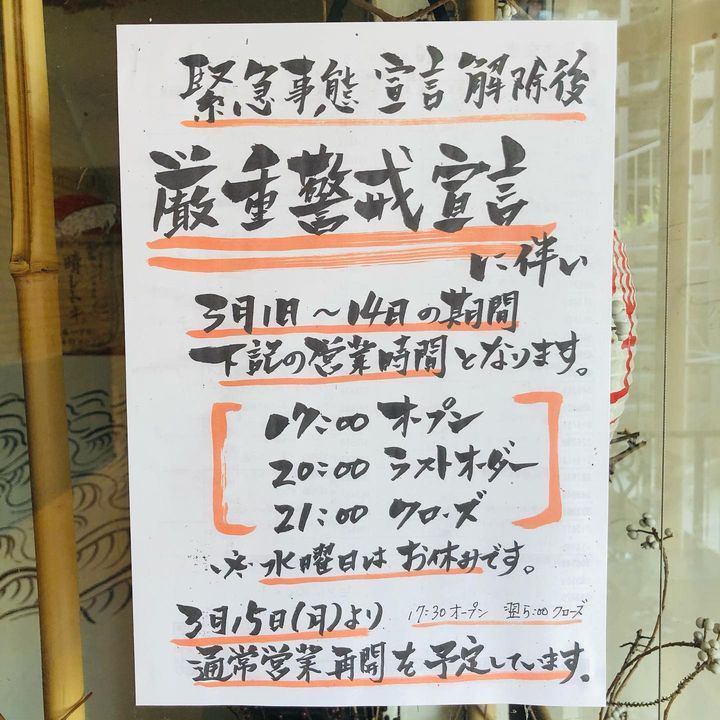 緊急事態宣言解除後
厳重警戒宣言
に伴い
3月1日〜14日の期間
下記の営業時間となります。
17:00 オープン
20:00 ラストオーダー
21:00 クローズ
※水曜日はお休みです。
3月15日(月)より 17:30オープン 翌5:00クローズ
通常営業再開を予定しています。